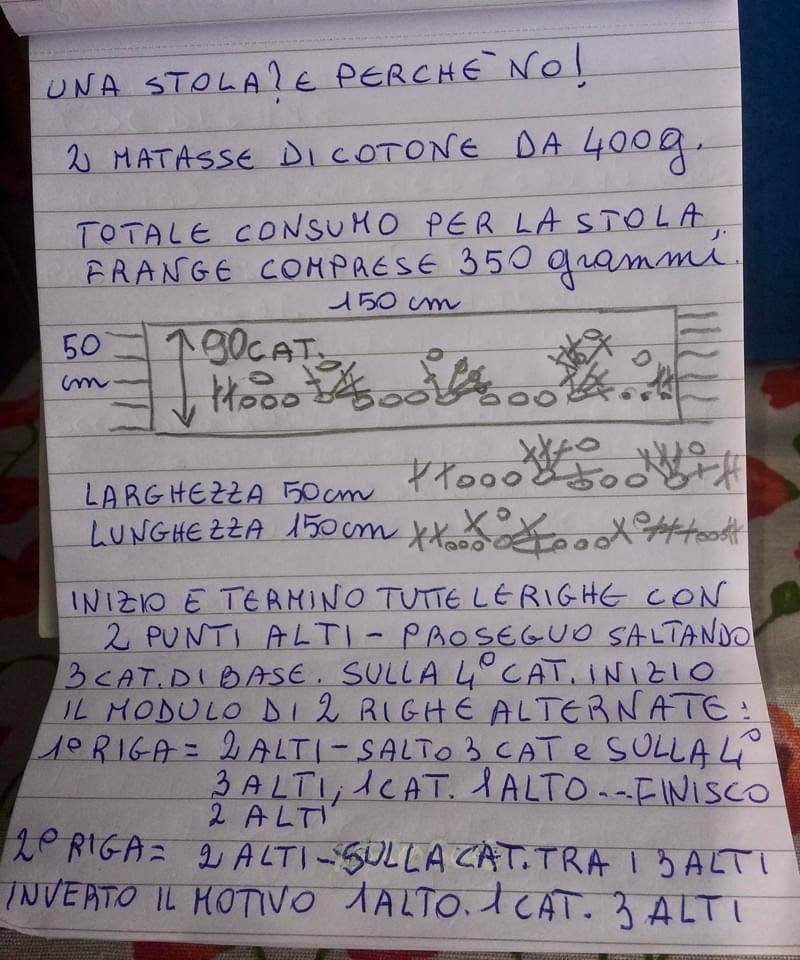 UNA STOLA? E PERCHÉ NO!
2 MATASSE DI COTONE DA 400g.
TOTALE CONSUMO PER LA STOLA,
FRANGE COMPRESE 350 grammi.
150 cm
50 cm
90 CAT.
LARGHEZZA 50cm
LUNGHEZZA 150cm
INIZIO E TERMINO TUTTE LE RIGHE CON
2 PUNTI ALTI - PROSEGUO SALTANDO
3 CAT. DI BASE. SULLA 4° CAT. INIZIO
IL MODULO DI 2 RIGHE ALTERNATE:
1° RIGA = 2 ALTI - SALTO 3 CAT e SULLA 4°
3 ALTI, 1 CAT. 1 ALTO --- FINISCO
2 ALTI
2° RIGA = 2 ALTI - SULLA CAT. TRA I 3 ALTI
INVERTO IL MOTIVO 1 ALTO. 1 CAT. 3 ALTI